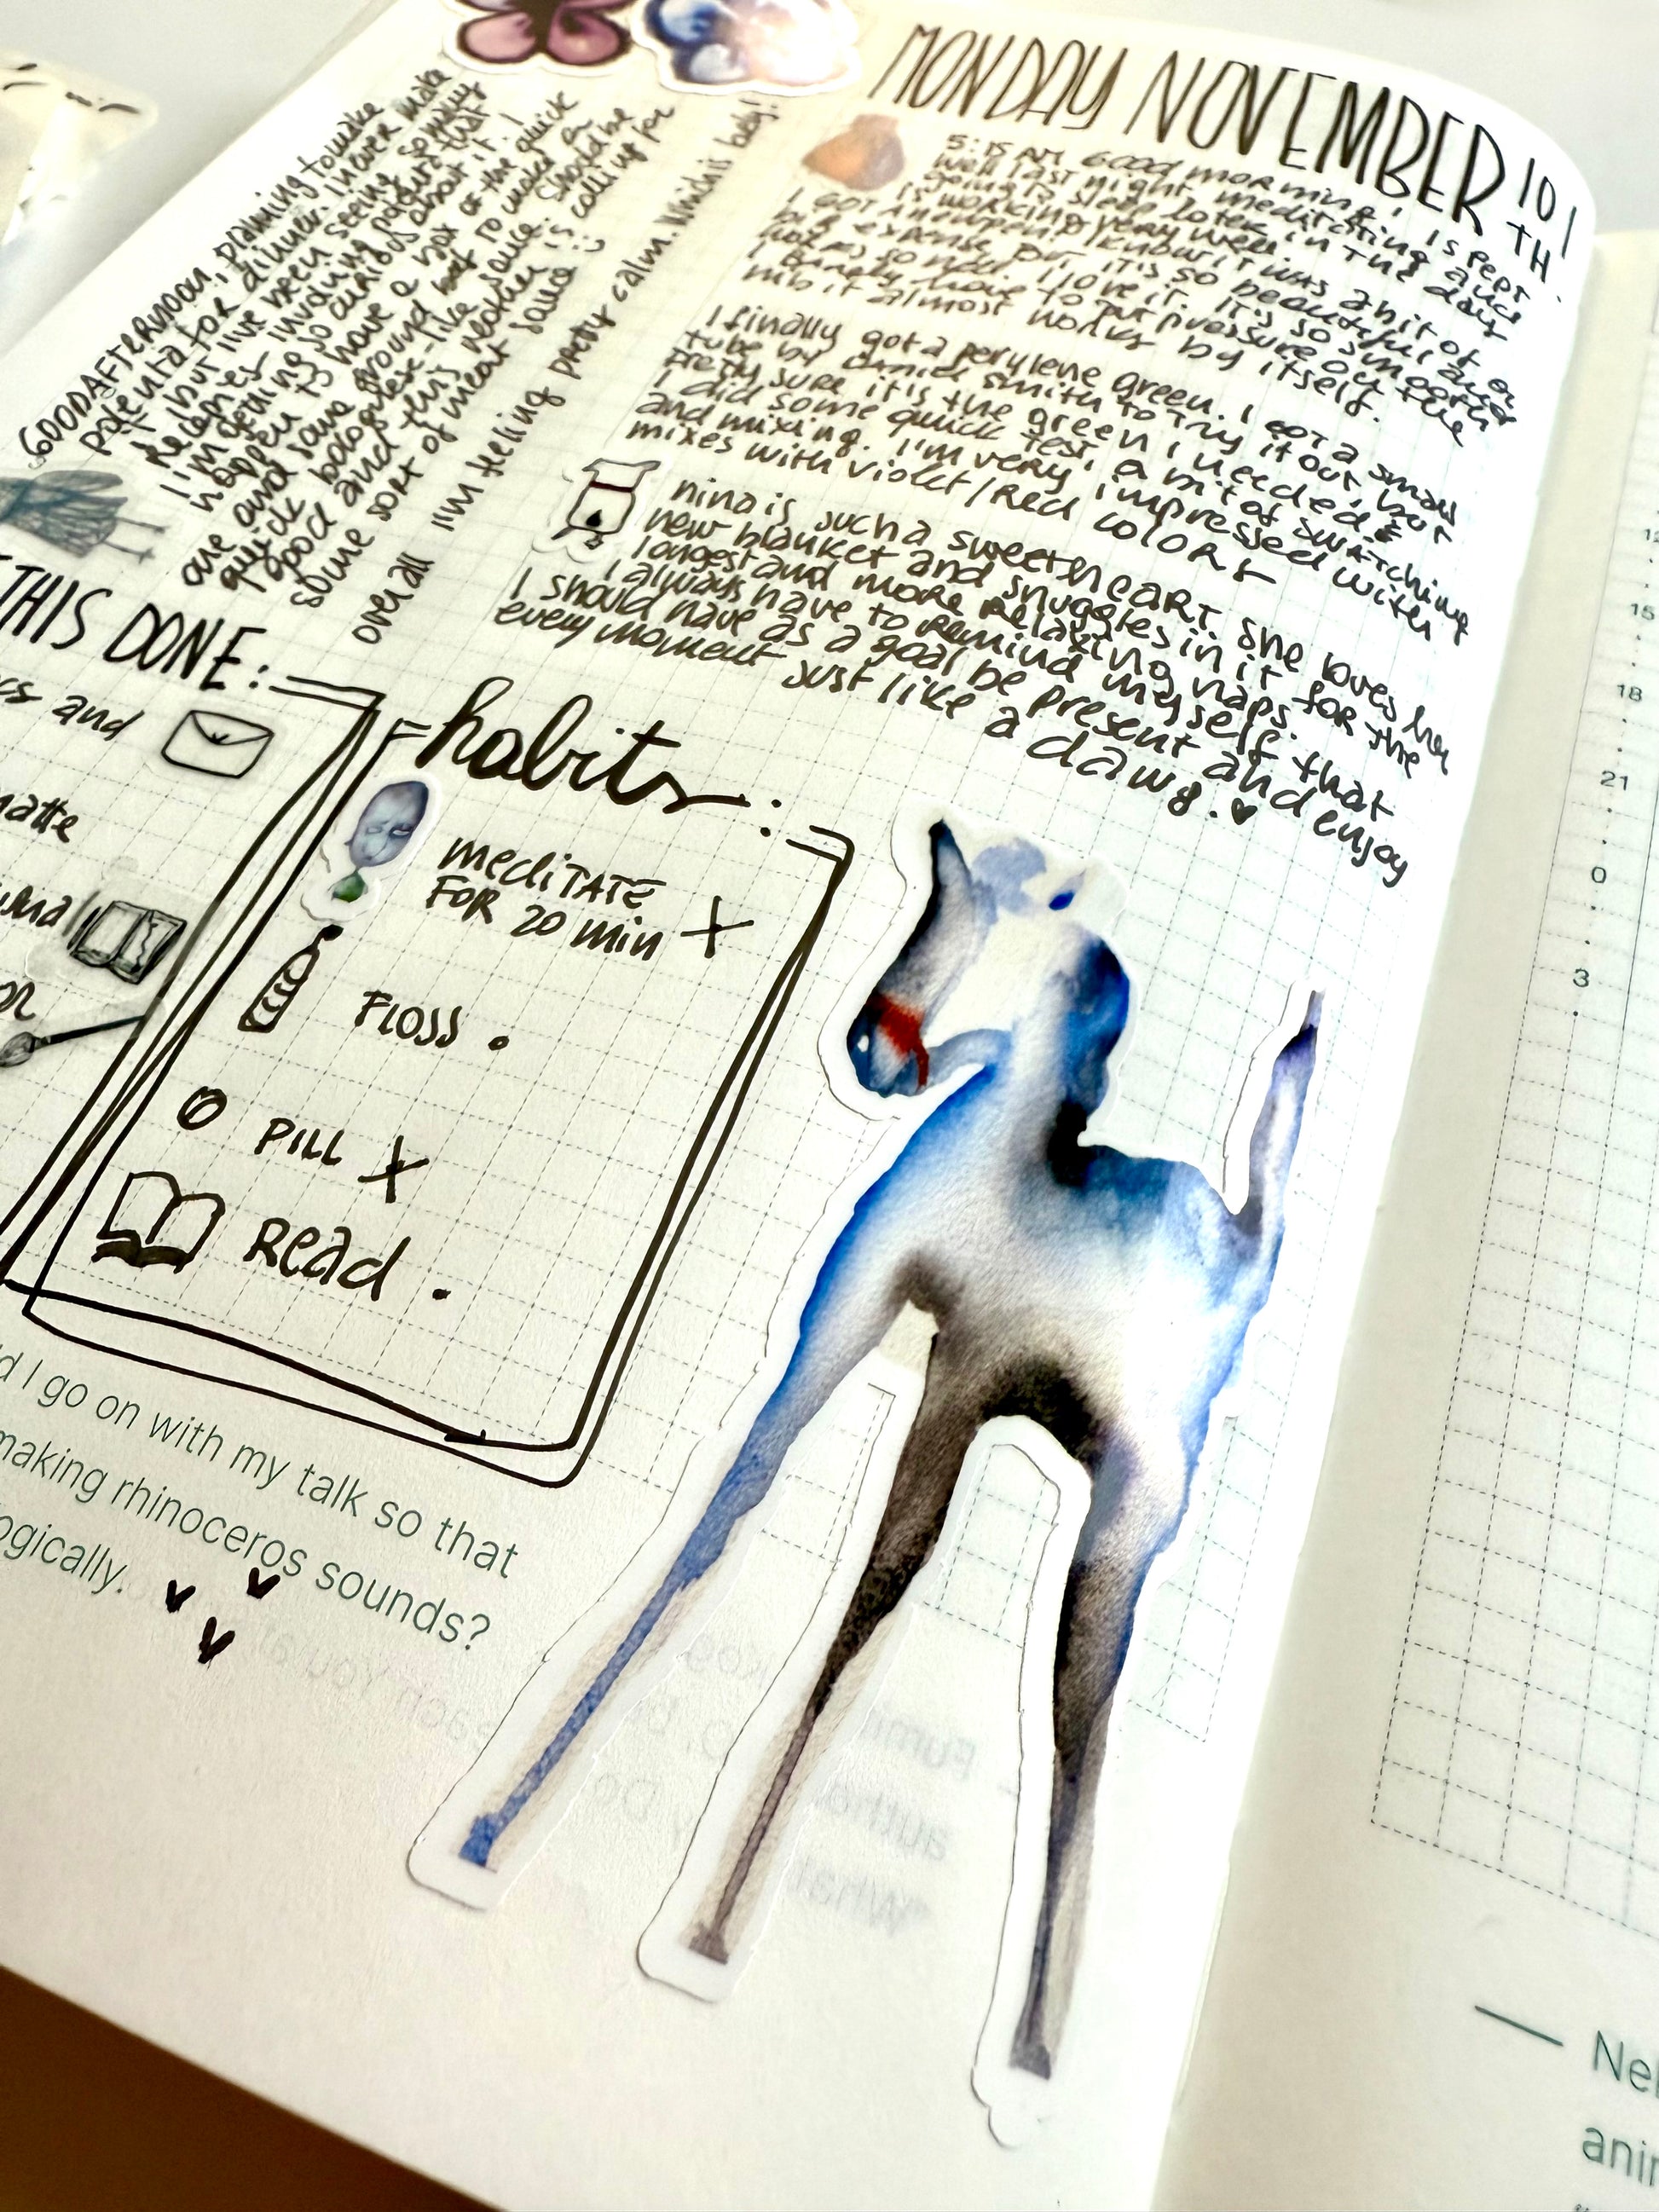 MONDAY NOVEMBER 10TH.
5:15 AM GOOD morning, I slept
well last night, meditating and
going to sleep later in the day
is working very well.
I GOT A new pen! I know it was a bit of an
big expense but it's so beautiful and
works so nice. I love it. It's so smooth
I barely have to put pressure on the
nib it almost works by itself.
I finally got a perylene green. I got a small
tube by Daniel Smith to try it out, but
pretty sure it's the green I needed &
I did some quick test, a bit of swatching
and mixing. I'm very impressed with
mixes with violet/Red colors
nina is such a sweetheart. She loves her
new blanket and snuggles in it for the
longest and more relaxing naps.
I always have to remind myself that
I should have as a goal be present and enjoy
every moment just like a dawg. ♥
GOOD AFTERNOON, planning to make
polenta for dinner. I never make
it, but I've been seeing so many
recipes involving polenta that
I'm getting so curious about it. I
happen to have a box of the quick
one and some ground beef to make a
quick bolognese-like sauce. Should be
good and this weather is calling for
some sort of meat sauce :)
overall I'm feeling pretty calm. Which is best!
THIS DONE:
and
matte
or
habits:
meditate
FOR 20 min X
FLOSS .
PILL X
Read .
d I go on with my talk so that
making rhinoceros sounds?
ogically.
12
15
18
21
0
3
— Nel
ani